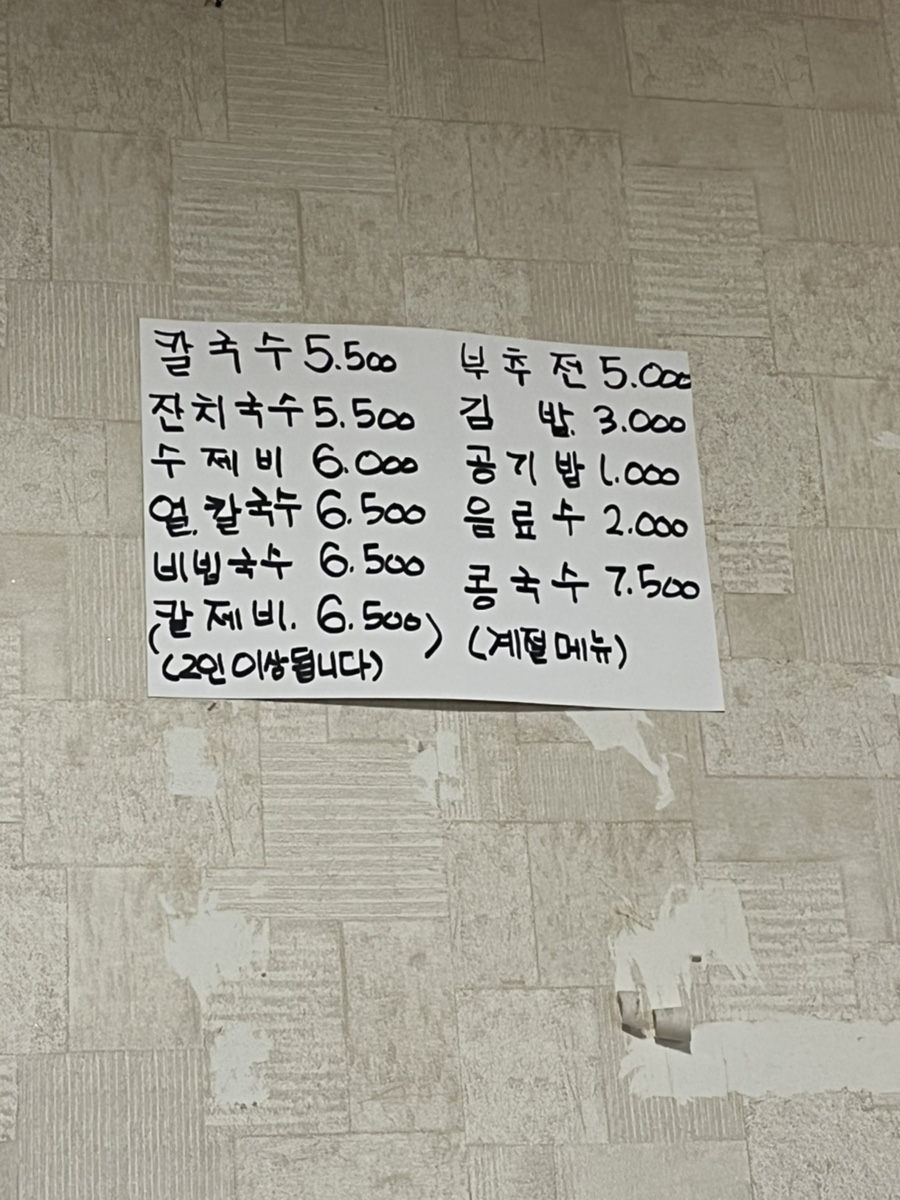 칼국수 5.500
잔치국수 5.500
수제비 6.000
얼.칼국수 6.500
비빔국수 6.500
(칼제비. 6.500)
(2인 이상 됩니다)
부추전 5.000
김 밥. 3.000
공기밥 1.000
음료수 2.000
콩국수 7.500
(계절메뉴)